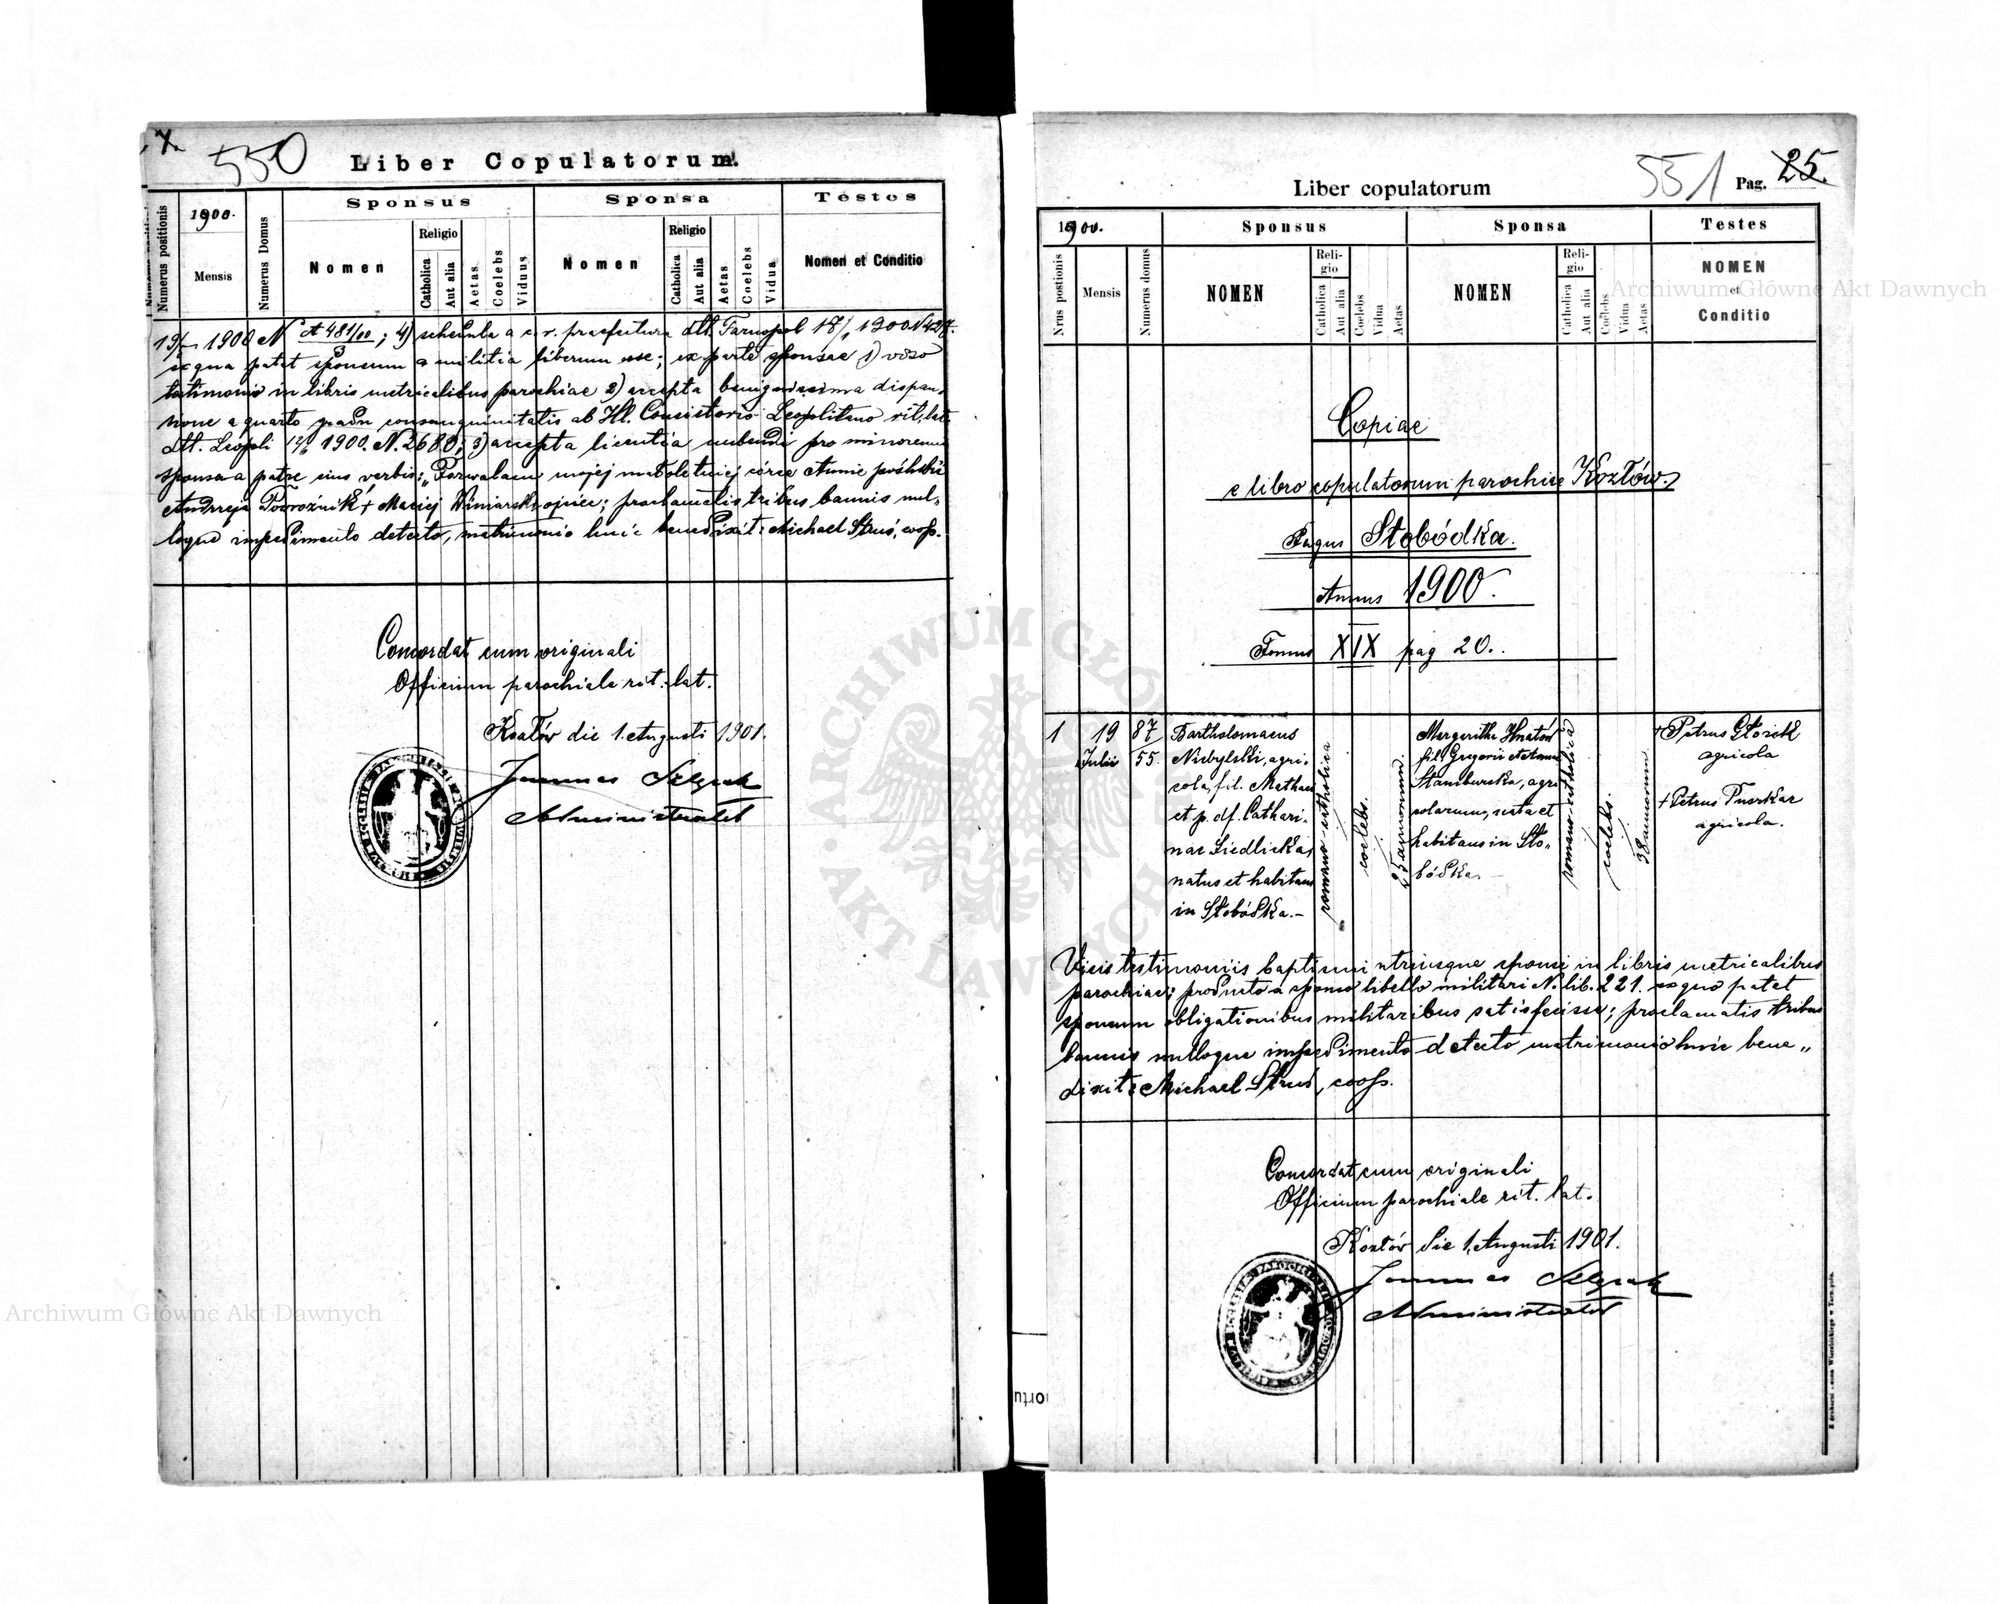 7.
550
Liber Copulatorum.
Numerus positionis
1900.
Mensis
Numerus Domus
Sponsus
Nomen
Religio
Catholica
Aut alia
Aetas
Coelebs
Viduus
Sponsa
Nomen
Religio
Catholica
Aut alia
Aetas
Coelebs
Vidua
Testes
Nomen et Conditio
1900 N 481/00 ; 4) schedula a c. r. praefectura dtt. Tarnopol 1900
ex qua patet sponsum a militia liberum esse; ex parte sponsae 1) viso
testimonio in libris metricalibus parochiae 2) accepta benignissima dispen-
a quarto gradu consanguinitatis ab Hl. Consistorio Leopolitano rit. lat.
dtt. Leopoli 1900. N. 2680; 3) accepta licentia nubendi pro minorenni
sponsa a patre eius verbis: „Pozwalam mojej małoletniej córce Annie
Andrzeja Podróżnik + Maciej Winiarski ojciec; proclamatis tribus bannis nul-
loque impedimento detecto, matrimonio huic benedixit: Michael Struś, coop.
Concordat cum originali
Officium parochiale rit. lat.
Kozłów die 1. Augusti 1901.
Joannes
Administrator
551
Liber copulatorum
Pag. 25.
1900.
Nrus postionis
Mensis
Numerus domus
Sponsus
NOMEN
Religio
Catholica
Aut alia
Coelebs
Vidua
Aetas
Sponsa
NOMEN
Religio
Catholica
Aut alia
Coelebs
Vidua
Aetas
Testes
NOMEN
et
Conditio
Copiae
e libro copulatorum parochiae Kozłów.
Pagus Słobódka.
Annus 1900.
Tomus XIX pag 20.
1
19
Julii
87
55.
Bartholomaeus
Niebylski, agri-
cola, fil. Mathaei
et p. df. Cathari-
nae Siedlicka,
natus et habitans
in Słobódka.-
romano-catholica
coelebs.
25 annorum.
Margaritha Hnatów
fil. Gregorii et Annae
Stamburska, agri-
colarum, nata et
habitans in Sło-
bódka.-
romano-catholica
coelebs.
38 annorum
+ Petrus Głowik
agricola
+ Petrus Puszkar
agricola.
Visis testimoniis baptismi utriusque sponsi in libris metricalibus
parochiae; producto a sponso libello militari N. lib. 221. ex quo patet
sponsum obligationibus militaribus satisfecisse; proclamatis tribus
bannis nulloque impedimento detecto matrimonio huic bene„
dixit: Michael Struś, coop.
Concordat cum originali
Officium parochiale rit. lat.
Kozłów die 1. Augusti 1901.
Joannes
Administrator
Archiwum Główne Akt Dawnych
Archiwum Główne Akt Dawnych
ARCHIWUM GŁÓWNE AKT DAWNYCH